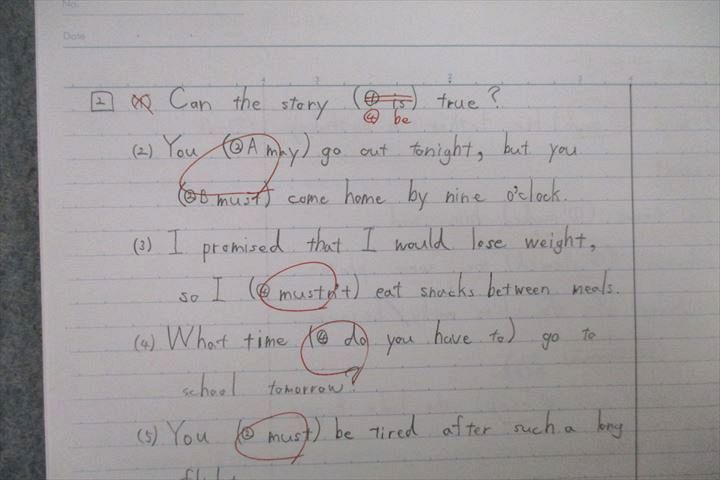 No.
Date
2 (1) Can the story (④ is) true?
④ be
(2) You (② A may) go out tonight, but you
(② B must) come home by nine o'clock.
(3) I promised that I would lose weight,
so I (④ mustn't) eat snacks between meals.
(4) What time (④ do you have to) go to
school tomorrow?
(5) You (② must) be tired after such a long